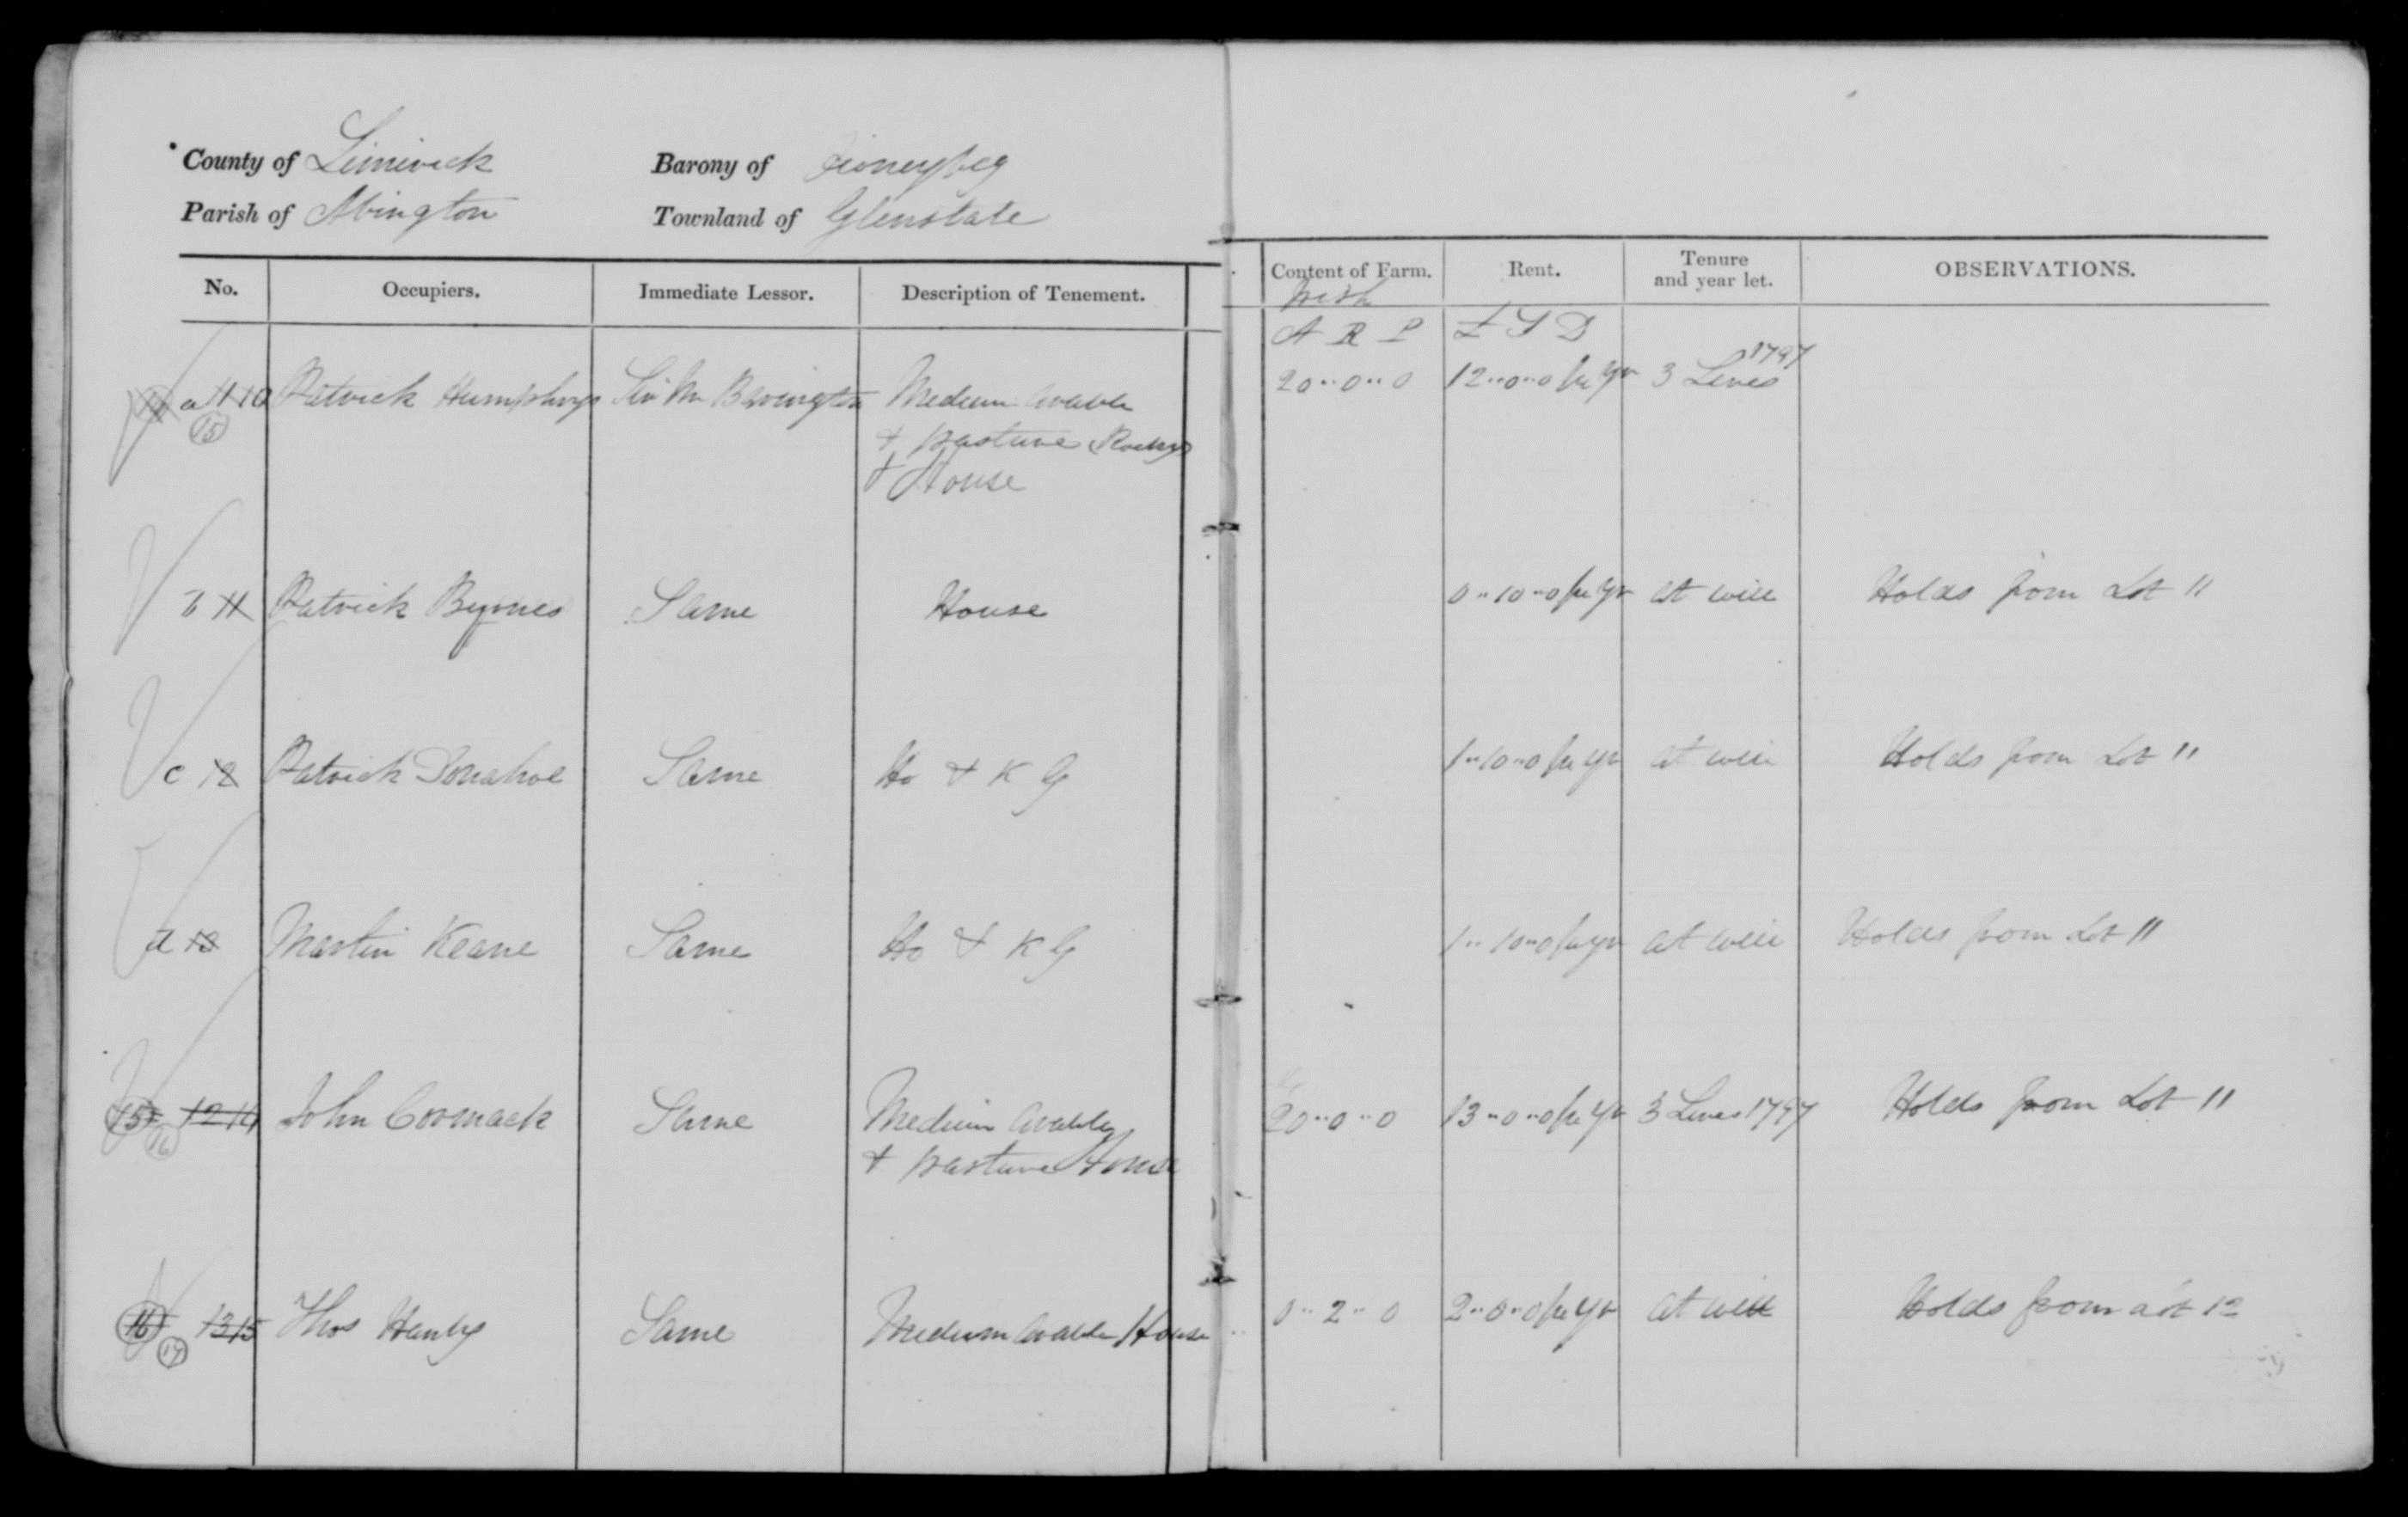 County of Limirick Barony of Owneybeg
Parish of Abington Townland of Glenstale
No. Occupiers. Immediate Lessor. Description of Tenement. Content of Farm. Rent. Tenure and year let. OBSERVATIONS.
Irish
A R P £ S D
a 11 10 Patrick Humphrys Sir Mw Barrington Medium Arable 20..0..0 12..0..0 per yr 3 Lives 1797
15 & pasture Rocky
& House
b 11 Patrick Byrnes Same House 0..10..0 per yr at will Holds from Lot 11
c 12 Patrick Donahoe Same Ho & K G 1..10..0 per yr at will Holds from Lot 11
d 13 Martin Keane Same Ho & K G 1..10..0 per yr at will Holds from Lot 11
15 12 14 John Cormack Same Medium Arable 20..0..0 13..0..0 per yr 3 Lives 1797 Holds from Lot 11
16 & pasture House
16 13 15 Thos Hanly Same Medium Arable House 0..2..0 2..0..0 per yr at will Holds from Lot 12
17